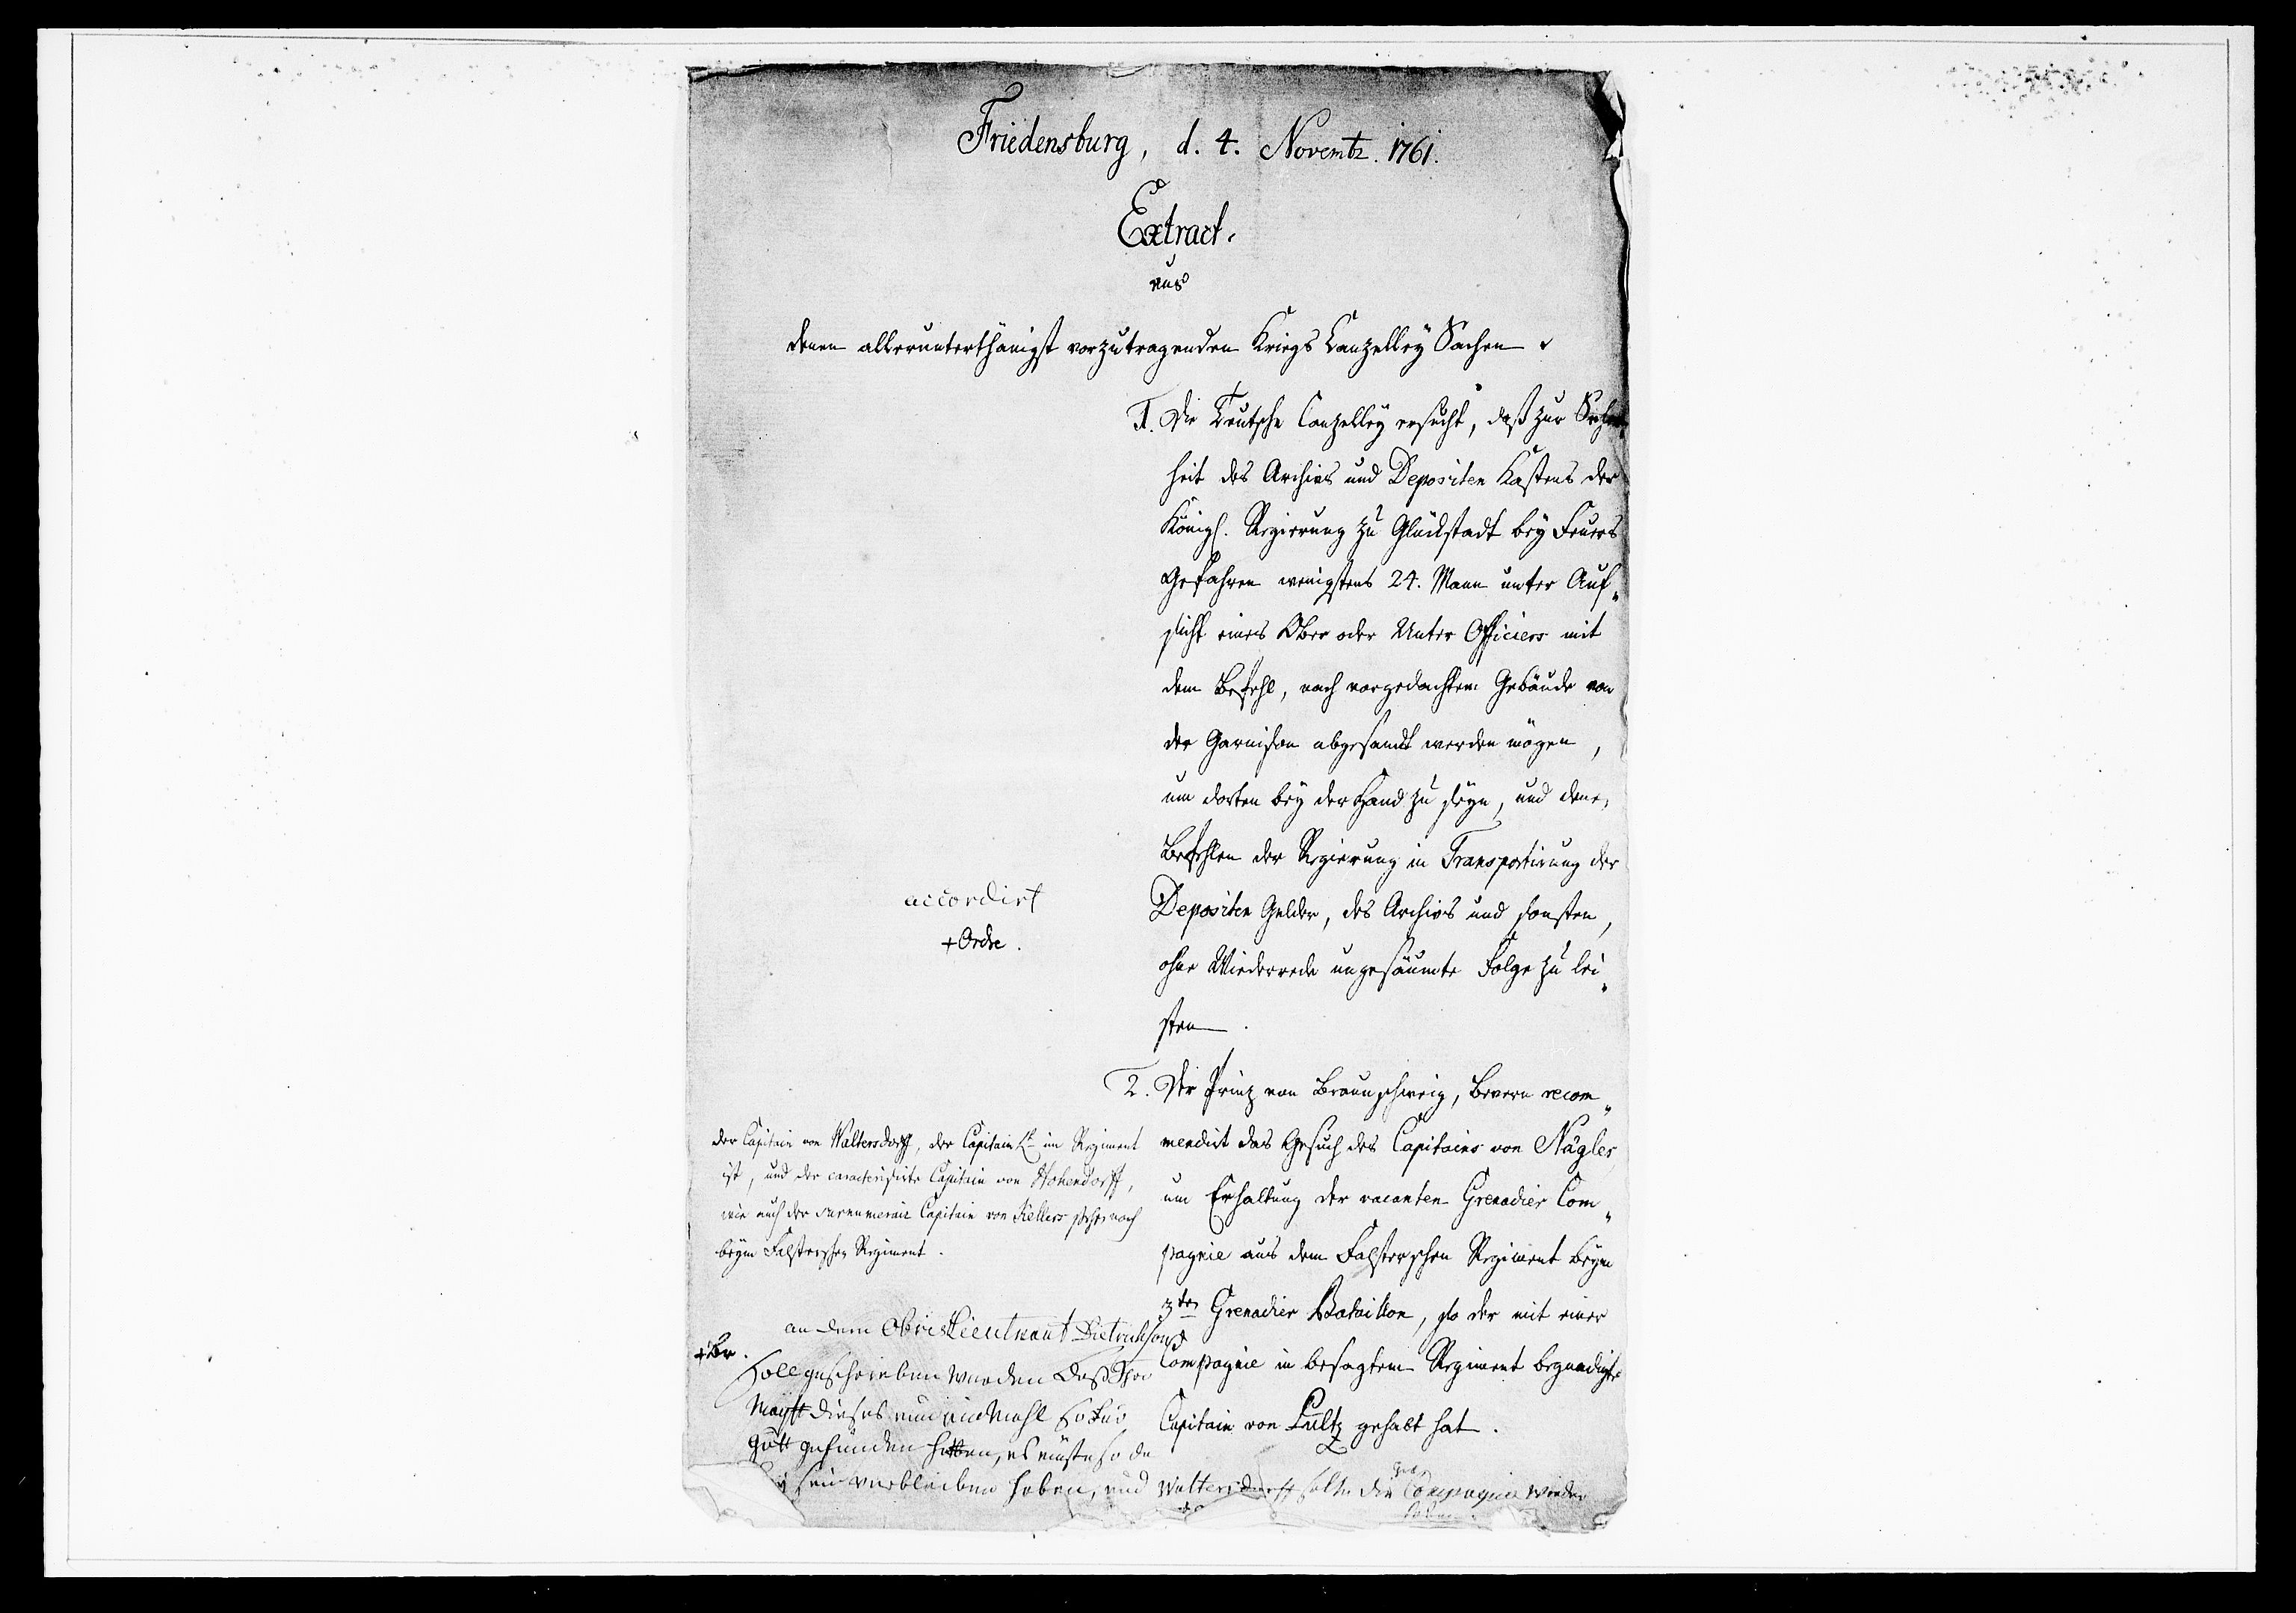 Friedensburg, d. 4. Novembr. 1761.
Extract.
aus
denen allerunterthänigst vorzutragenden Kriegs Canzelley Sachen.
1. Die Teutsche Canzelley ersucht, daß zur Sicher
heit des Archivs und Depositen Kastens der
Königl. Regierung zu Glückstadt bey Feuers
Gefahren wenigstens 24. Mann unter Auf„
sicht eines Ober oder Unter Officiers mit
dem Befehl, nach vorgedachtem Gebäude von
der Garnison abgesandt werden mögen,
um dorten bey der Hand zu seyn, und denen
Befehlen der Regierung in Transportirung der
Depositen Gelder, des Archivs und sonsten,
ohne Wiederrede ungesäumte Folge zu lei„
sten.
accordirt
+ Ordre.
2. Der Prinz von Braunschweig, Bevern recom„
mendirt das Gesuch des Capitains von Nägler,
um Erhaltung der vacanten Grenadier Com„
pagnie aus dem Falsterschen Regiment beym
3ten Grenadier Bataillon, so der mit einer
Compagnie in besagtem Regiment begnadigte
Capitain von Lultz gehabt hat.
der Capitain von Waltersdorff, der Capitain Lt im Regiment
ist, und der caracterisirte Capitain von Hohendorff,
wie auch der surnumerair Capitain von Kellers stehet noch
beym Falsterschen Regiment.
+ Br.
an dem Obristlieutnant Dietrichson
soll geschrieben werden daß Ihro
Mayst dieses nun ein Mahl so
gutt gefunden hetten, es müste so da
bey sein verbleiben haben, und Waltersdorff solte die Gre. Compagnie wieder